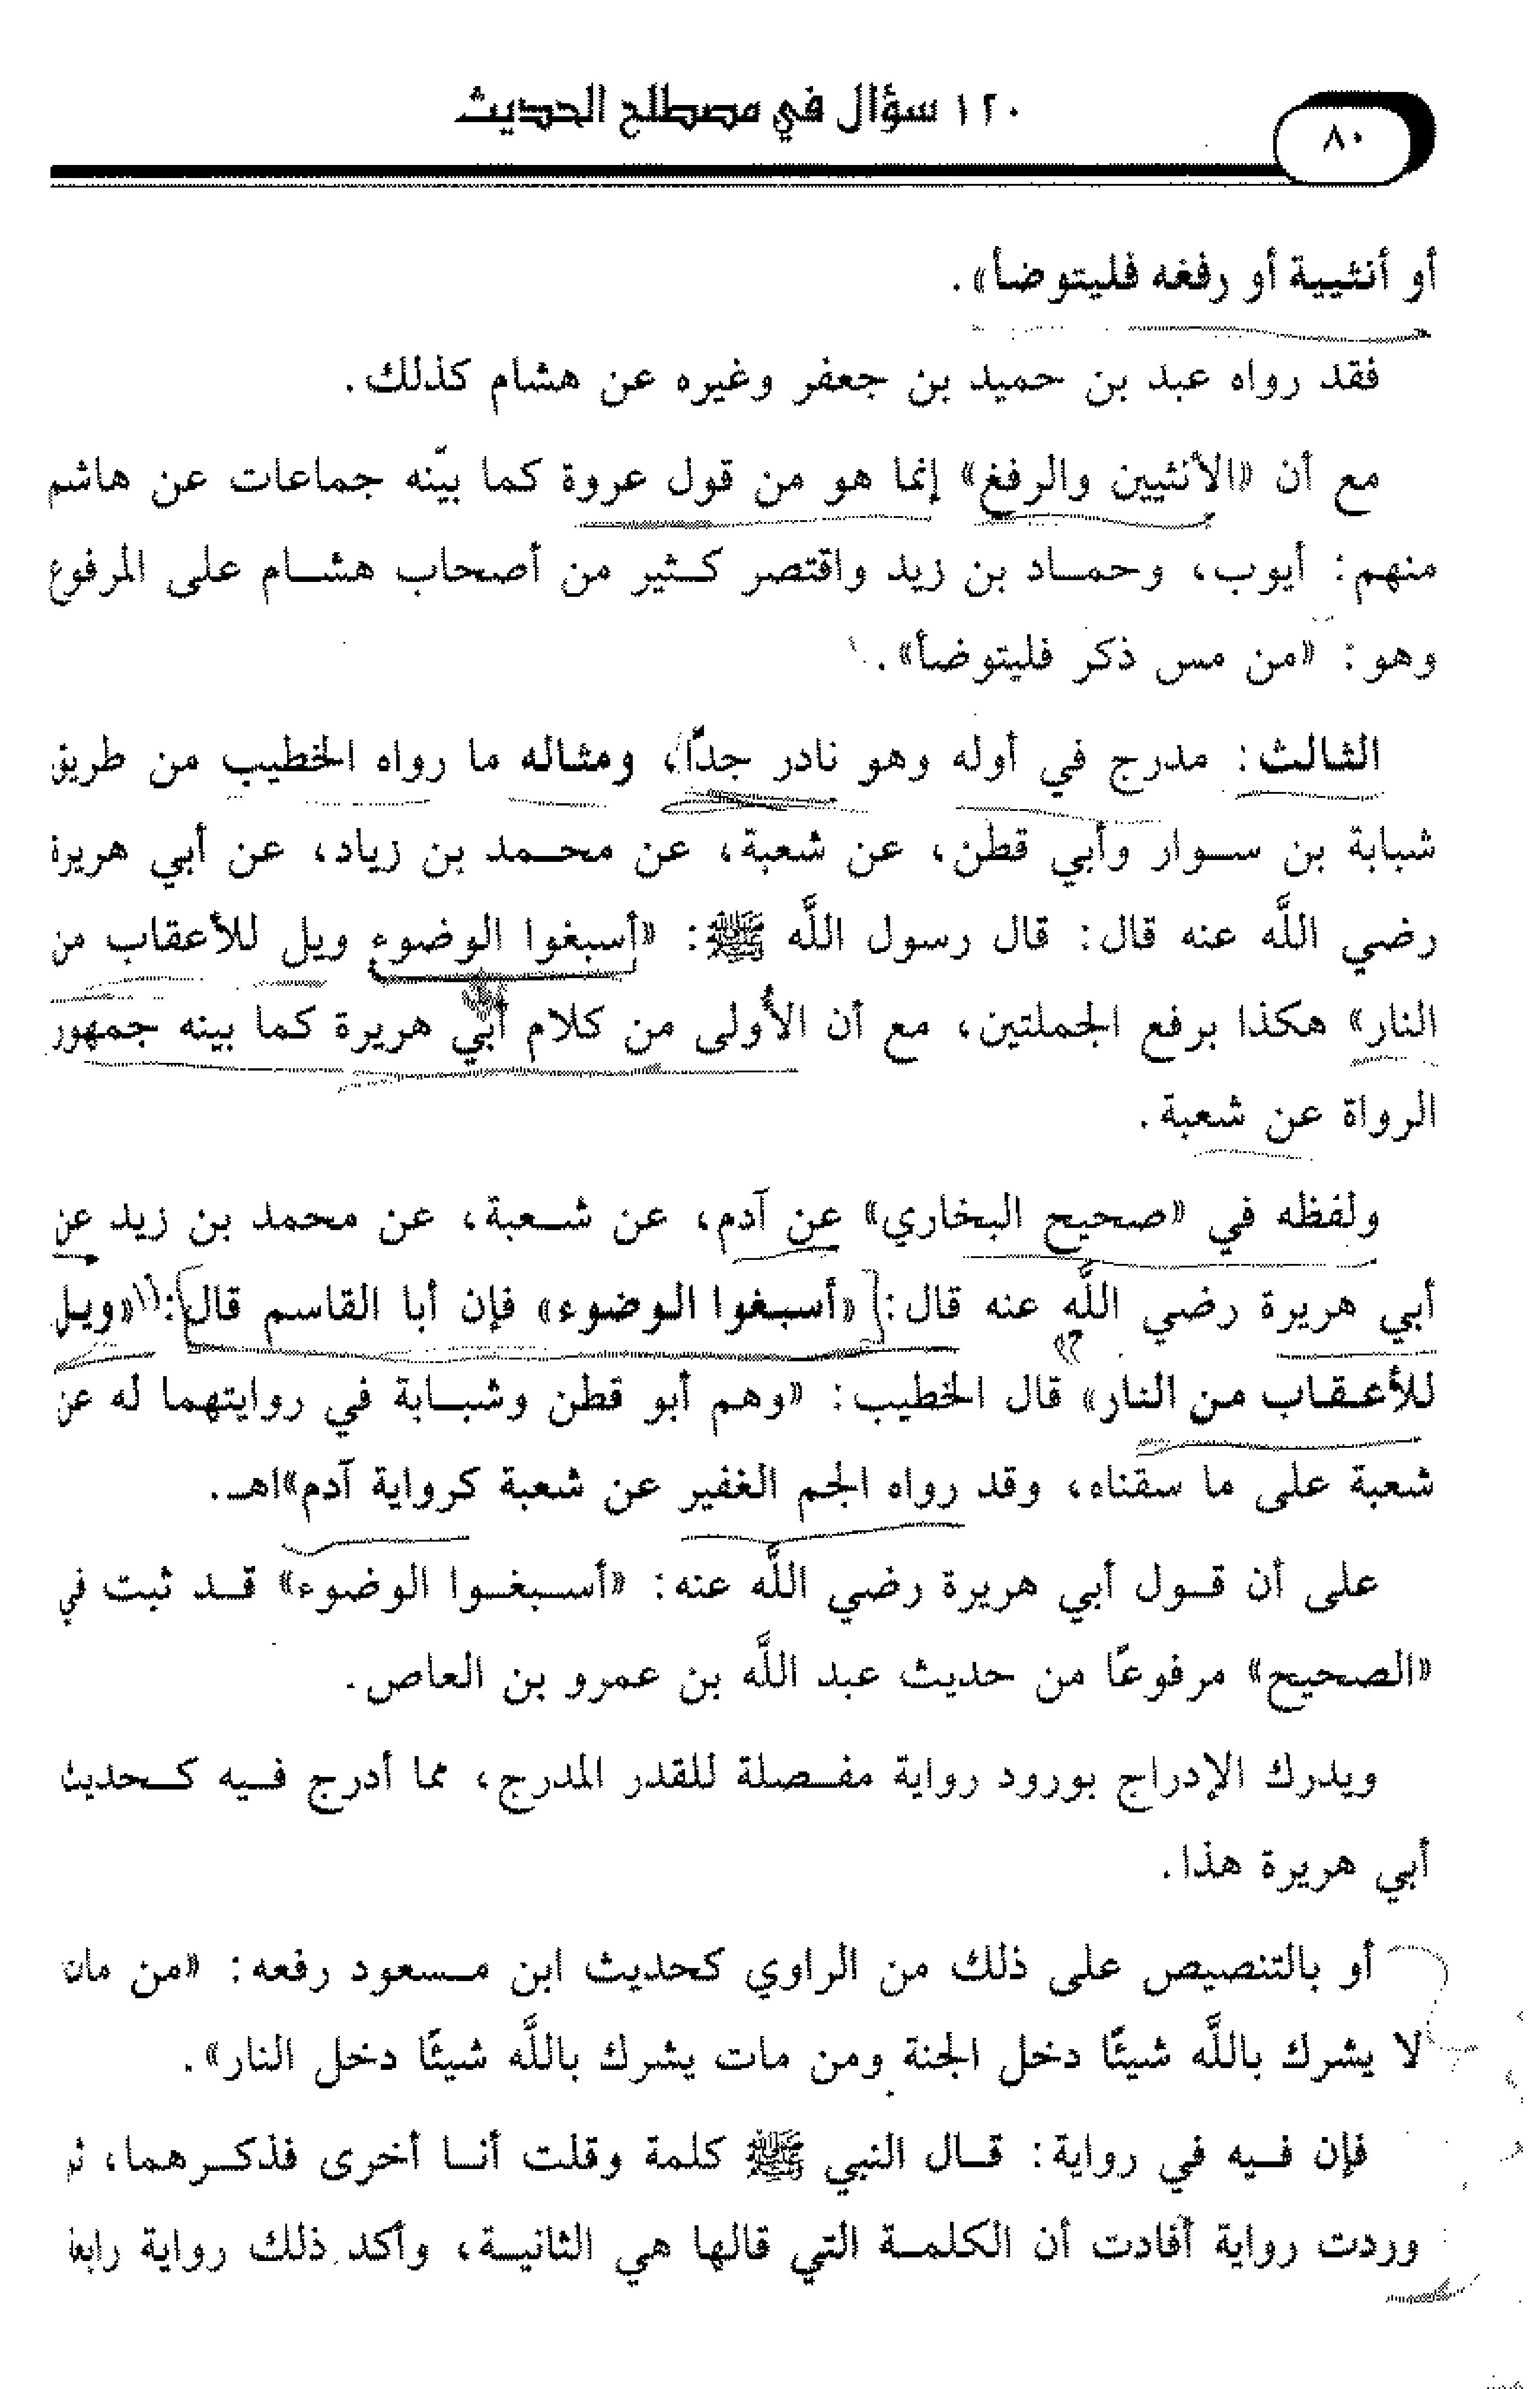 ١٢٠ سؤال في مصطلح الحديث
٨٠
أو أنثيية أو رفغه فليتوضأ».
فقد رواه عبد بن حميد بن جعفر وغيره عن هشام كذلك.
مع أن «الأنثيين والرفغ» إنما هو من قول عروة كما بيّنه جماعات عن هاشم
منهم: أيوب، وحماد بن زيد واقتصر كثير من أصحاب هشام على المرفوع
وهو: «من مس ذكر فليتوضأ».
الثالث: مدرج في أوله وهو نادر جدًا، ومثاله ما رواه الخطيب من طريق
شبابة بن سوار وأبي قطن، عن شعبة، عن محمد بن زياد، عن أبي هريرة
رضي اللَّه عنه قال: قال رسول اللَّه ﷺ: «أسبغوا الوضوء ويل للأعقاب من
النار» هكذا برفع الجملتين، مع أن الأولى من كلام أبي هريرة كما بينه جمهور
الرواة عن شعبة.
ولفظه في «صحيح البخاري» عن آدم، عن شعبة، عن محمد بن زيد عن
أبي هريرة رضي اللَّه عنه قال: «أسبغوا الوضوء» فإن أبا القاسم قال: «ويل
للأعقاب من النار» قال الخطيب: «وهم أبو قطن وشبابة في روايتهما له عن
شعبة على ما سقناه، وقد رواه الجم الغفير عن شعبة كرواية آدم»اهـ.
على أن قول أبي هريرة رضي اللَّه عنه: «أسبغوا الوضوء» قد ثبت في
«الصحيح» مرفوعًا من حديث عبد اللَّه بن عمرو بن العاص.
ويدرك الإدراج بورود رواية مفصلة للقدر المدرج، مما أدرج فيه كحديث
أبي هريرة هذا.
أو بالتنصيص على ذلك من الراوي كحديث ابن مسعود رفعه: «من مات
لا يشرك باللَّه شيئًا دخل الجنة ومن مات يشرك باللَّه شيئًا دخل النار».
فإن فيه في رواية: قال النبي ﷺ كلمة وقلت أنا أخرى فذكرهما، ثم
وردت رواية أفادت أن الكلمة التي قالها هي الثانية، وأكد ذلك رواية رابعة